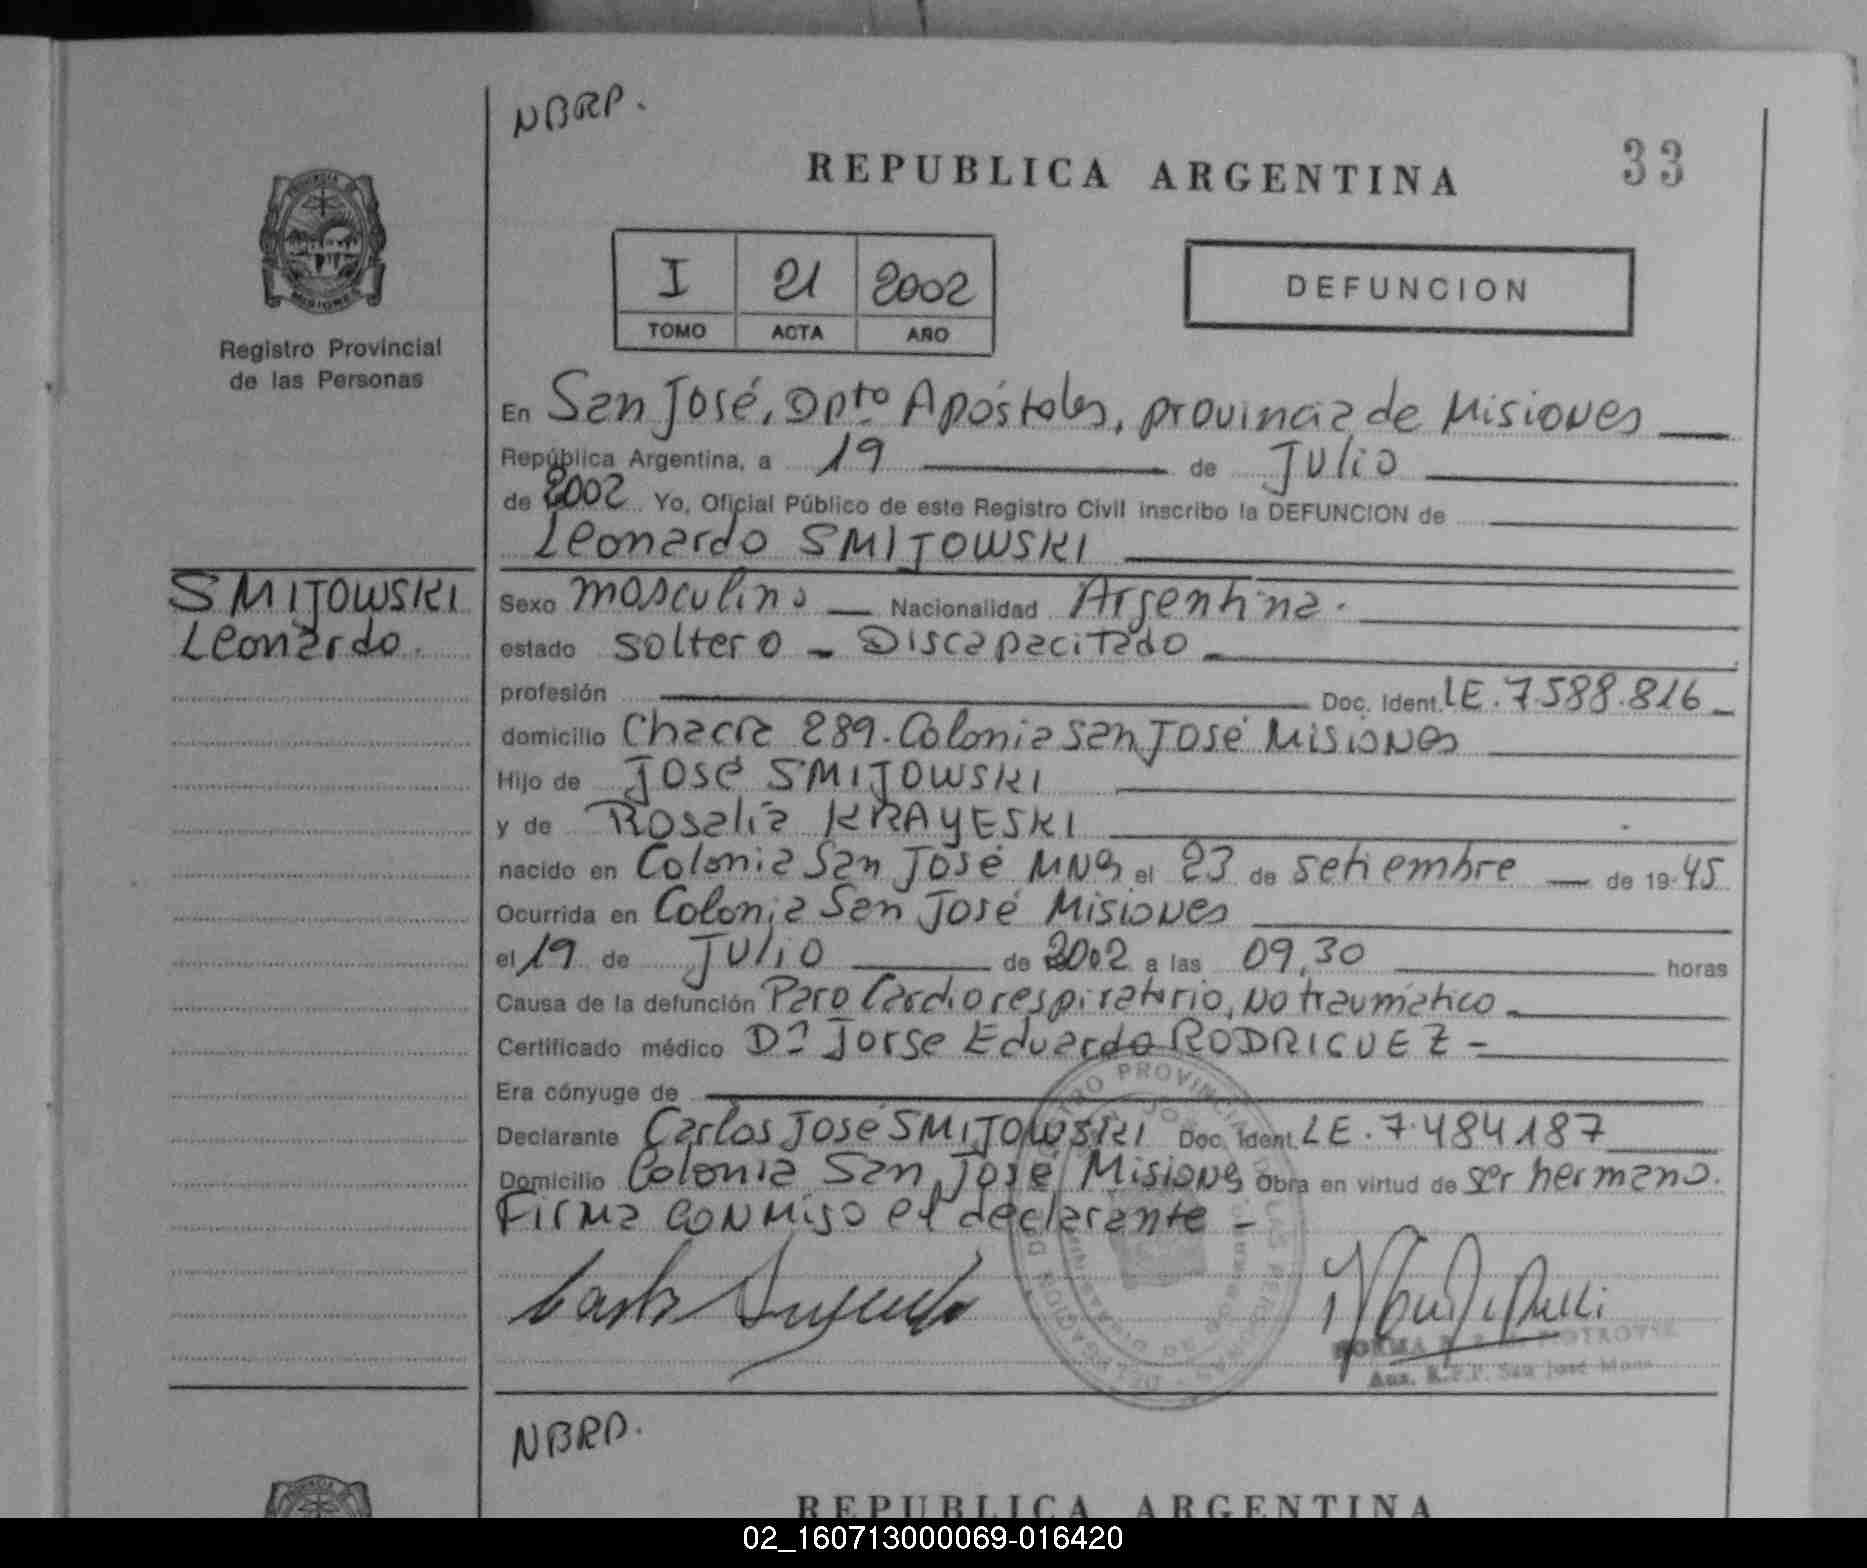 NBRP.
REPUBLICA ARGENTINA
33
PROVINCIA DE
MISIONES
Registro Provincial
de las Personas
I 21 2002
TOMO ACTA AÑO
DEFUNCION
En San José, Dpto Apóstoles, provincia de Misiones
República Argentina, a 19 de Julio
de 2002 Yo, Oficial Público de este Registro Civil inscribo la DEFUNCION de
Leonardo SMIJOWSKI
SMIJOWSKI
Leonardo.
Sexo masculino Nacionalidad Argentina.
estado soltero - Discapacitado
profesión Doc. Ident. LE. 7.588.816
domicilio Chacra 289. Colonia San José Misiones
Hijo de José SMIJOWSKI
y de Rosalia KRAYESKI
nacido en Colonia San José MNES el 23 de setiembre de 19 45
Ocurrida en Colonia San José Misiones
el 19 de Julio de 2002 a las 09,30 horas
Causa de la defunción Paro Cardiorespiratorio, No traumático
Certificado médico Dr Jorge Eduardo RODRIGUEZ -
Era cónyuge de
Declarante Carlos José SMIJOWSKI Doc. Ident. LE. 7.484187
Domicilio Colonia San José Misiones Obra en virtud de ser hermano.
Firma conmigo el declarante -
NORMA
Aux. R.P.P. San José Mnes
NBRP.
REPUBLICA ARGENTINA
02_160713000069-016420